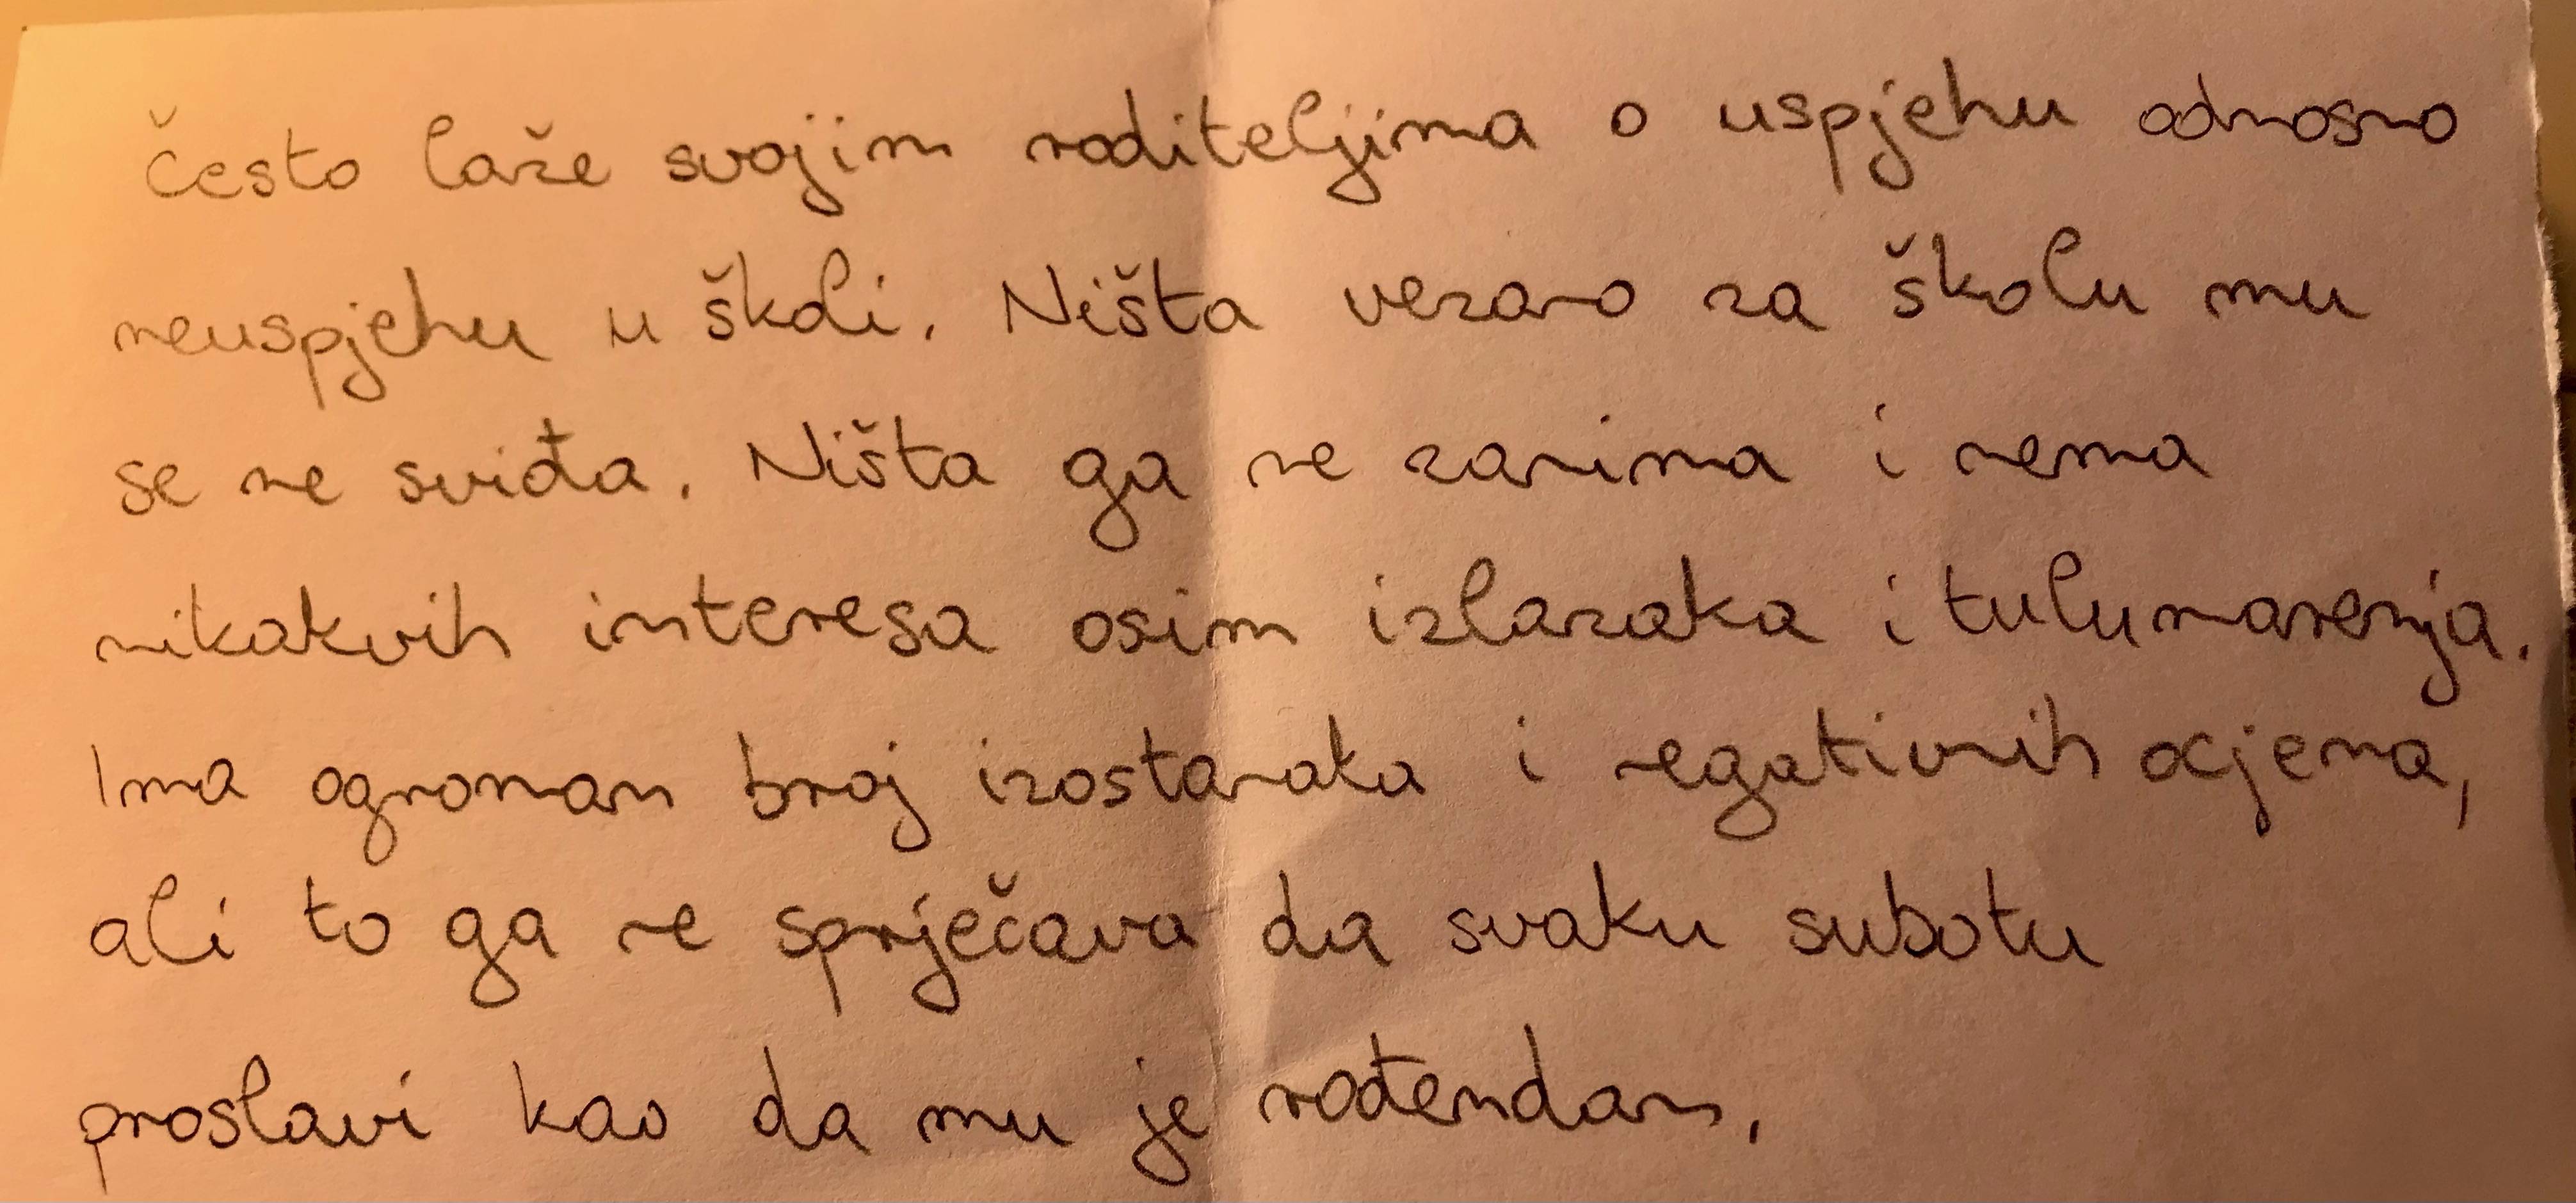 Često laže svojim roditeljima o uspjehu odnosno
neuspjehu u školi. Ništa vezano za školu mu
se ne sviđa. Ništa ga ne zanima i nema
nikakvih interesa osim izlazaka i tulumarenja.
Ima ogroman broj izostanaka i negativnih ocjena,
ali to ga ne sprječava da svaku subotu
proslavi kao da mu je rođendan,